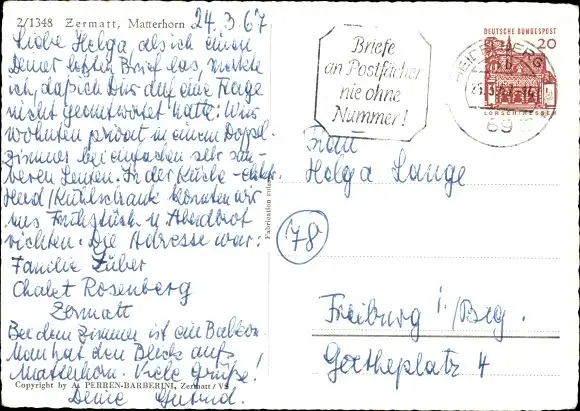 2/1348 Zermatt, Matterhorn 24.3.67.
Liebe Helga, als ich einen
Deiner letzten Brief las, merkte
ich, daß ich Dir auf eine Frage
nicht geantwortet hatte: Wir
wohnten privat in einem Doppel-
zimmer bei einfachen sehr sau-
beren Leuten. In der Küche - elektr.
Herd/Kühlschrank konnten wir
uns Frühstück u. Abendbrot
richten. Die Adresse war:
Familie Zuber
Chalet Rosenberg
Zermatt
Bei dem Zimmer ist ein Balkon.
Man hat den Blick aufs
Matterhorn. Viele Grüße!
Copyright by A. PERREN-BARBERINI, Zermatt/VS
Deine Gutrud.
Briefe
an Postfächer
nie ohne
Nummer!
HEIDELBERG
69
DEUTSCHE BUNDESPOST
20
LORSCH/HESSEN
Frau
Helga Lange
78
Freiburg i./Brg.
Goetheplatz 4